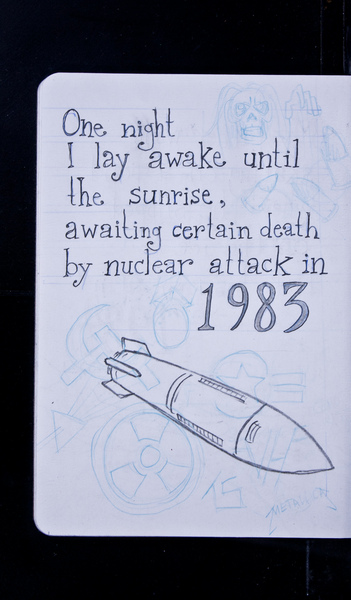 One night
I lay awake until
the sunrise,
awaiting certain death
by nuclear attack in
1983